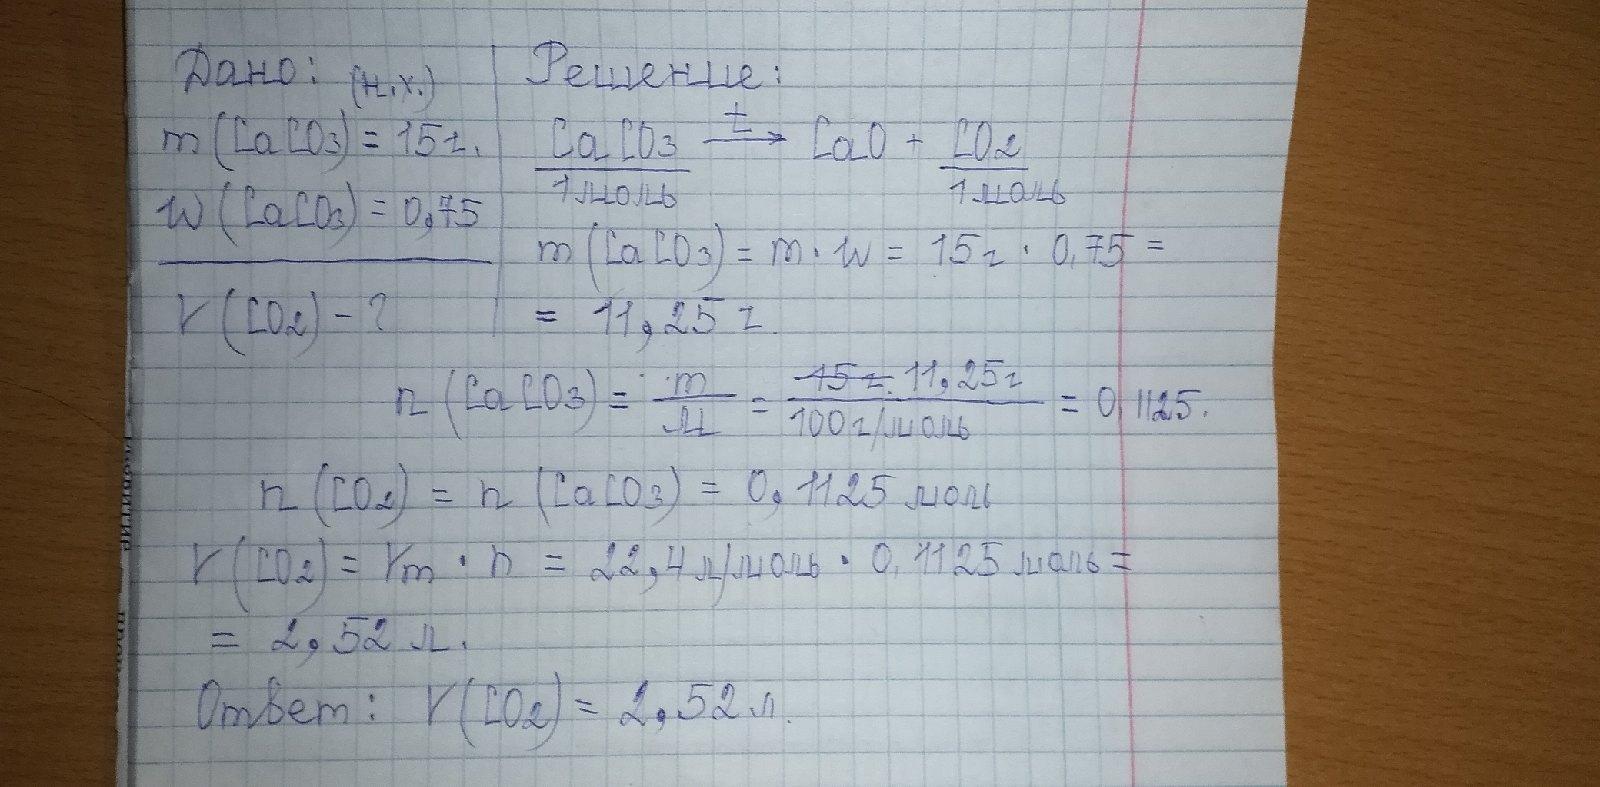 Дано: (н.х.)
m (CaCO3) = 15г.
w (CaCO3) = 0,75
V (CO2) - ?
Решение:
CaCO3 t → CaO + CO2
1 моль 1 моль
m (CaCO3) = m · w = 15г · 0,75 =
= 11,25 г.
n (CaCO3) = m / M = 15 г. 11,25г / 100г/моль = 0,1125.
n (CO2) = n (CaCO3) = 0,1125 моль
V (CO2) = Vm · n = 22,4 л/моль · 0,1125 моль =
= 2,52 л.
Ответ: V (CO2) = 2,52 л.